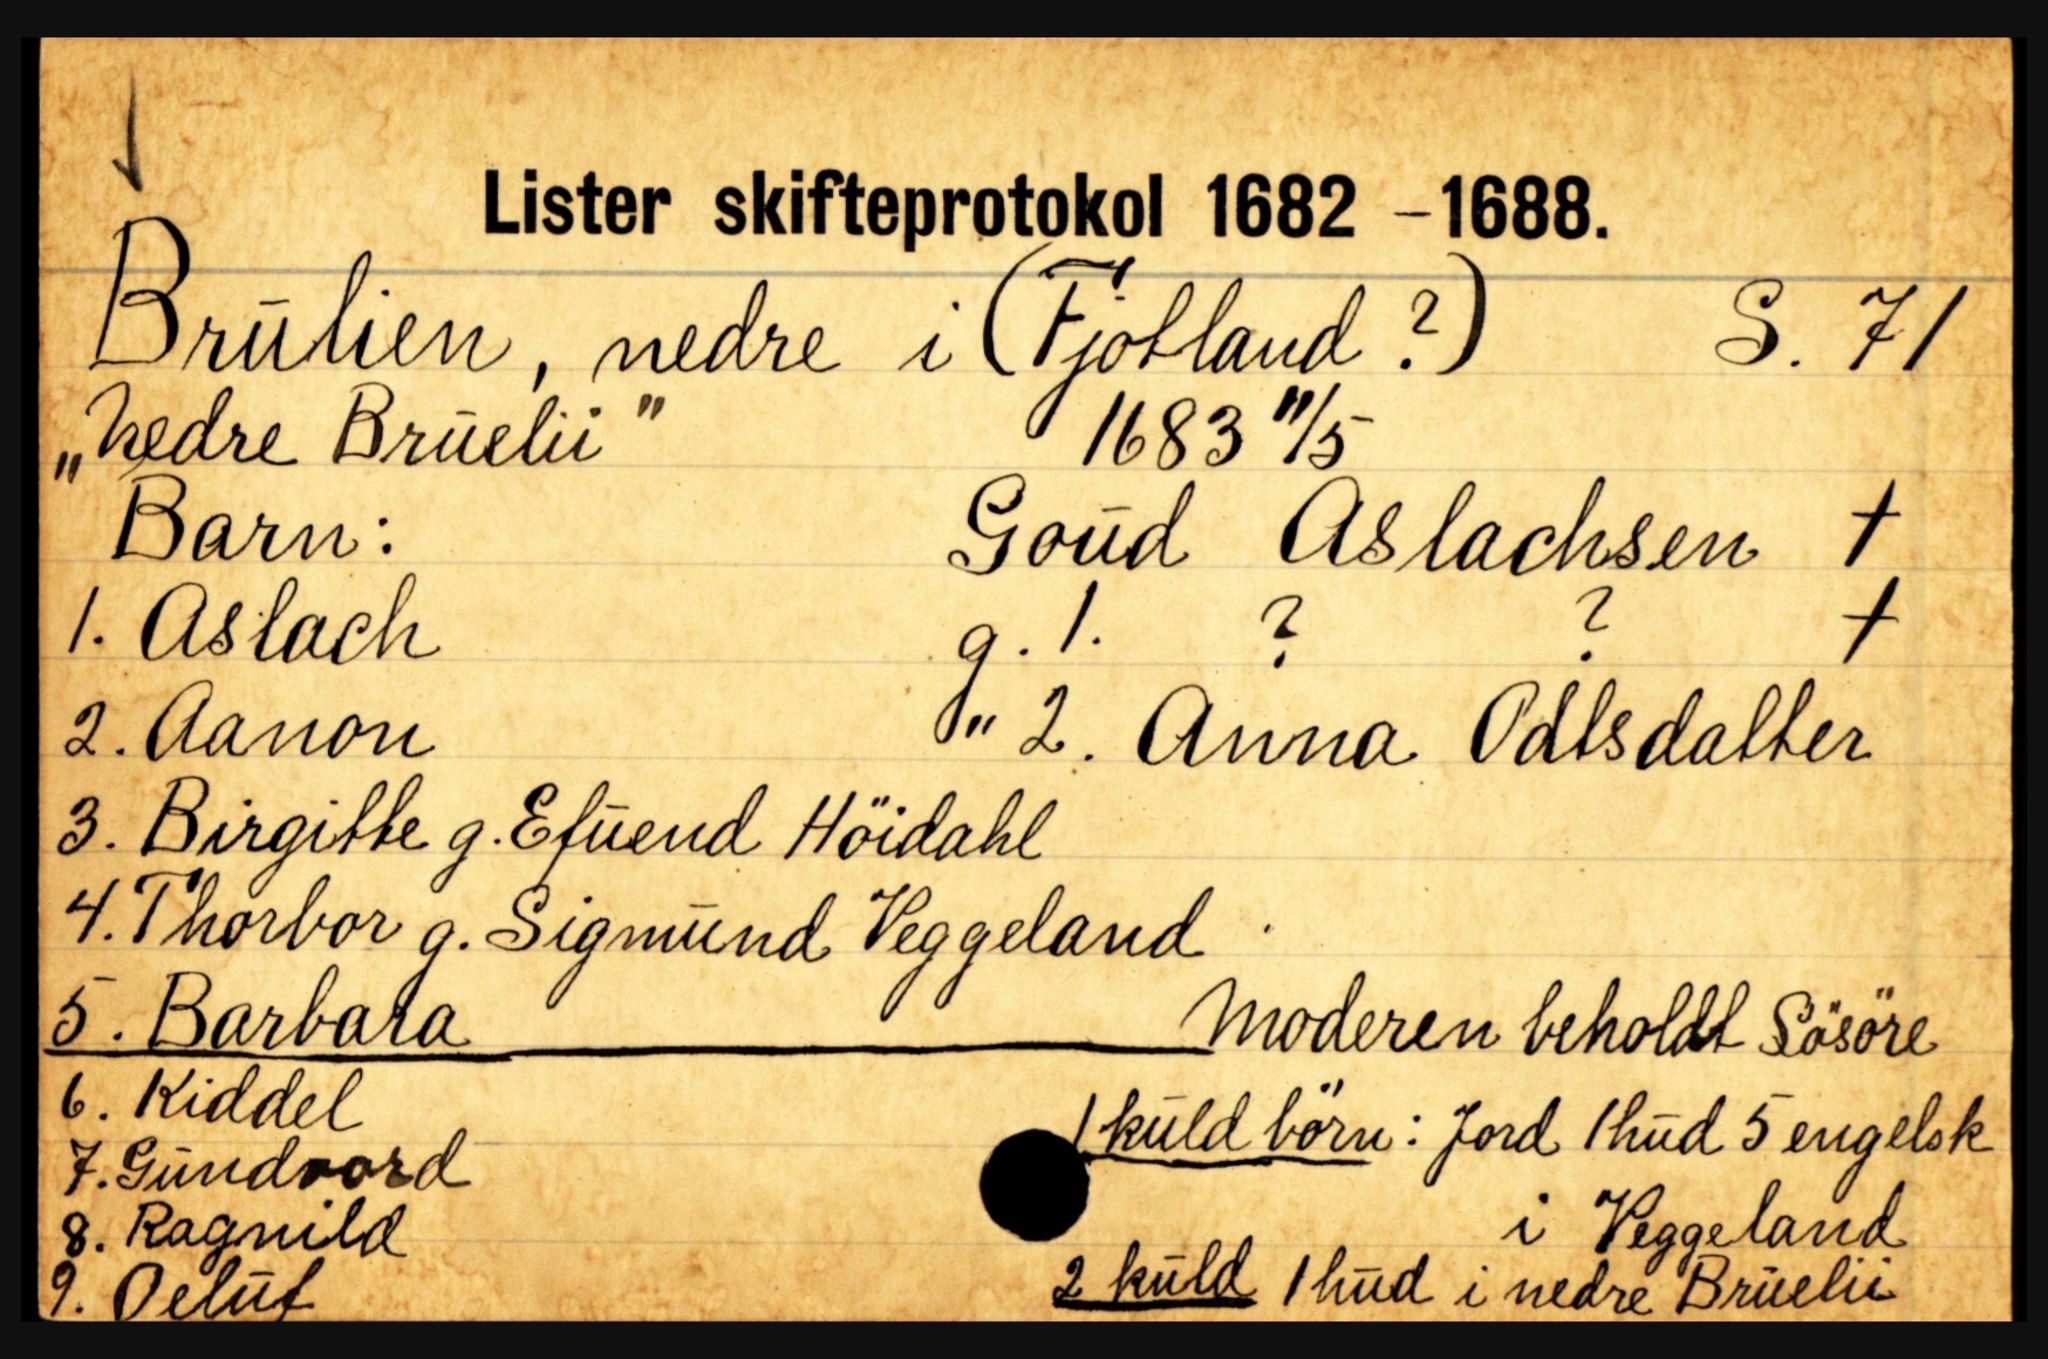 Lister skifteprotokol 1682 - 1688.
Brūlien, nedre i (Fjotland ?) S. 71
„Nedre Brūelii" 1683 11/5
Barn: Goūd Aslachsen †
1. Aslach g. 1. ? ? †
2. Aanon " 2. Anna Odtsdatter
3. Birgitte g. Efūend Höidahl
4. Thorbor g. Sigmūnd Veggeland
5. Barbara Moderen beholdt Lösöre
6. Kiddel 1 kūld börn: Jord 1 hūd 5 engelsk
7. Gūndvord i Veggeland
8. Ragnild
9. Oelūf 2 kūld 1 hūd i nedre Brūelii